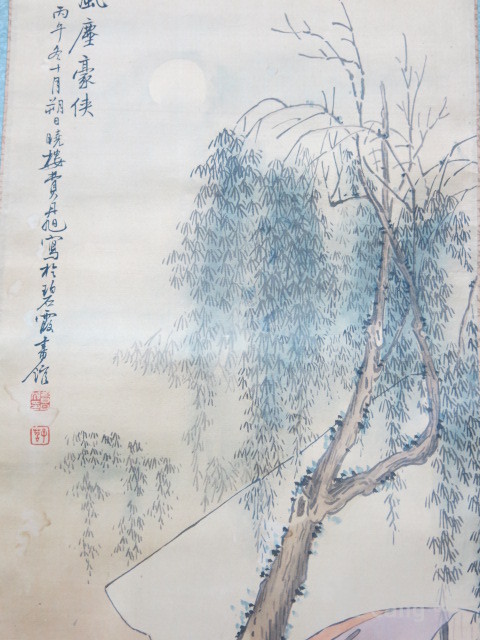 風塵豪俠
丙午冬十月朔日曉樓費丹旭寫於碧霞書館